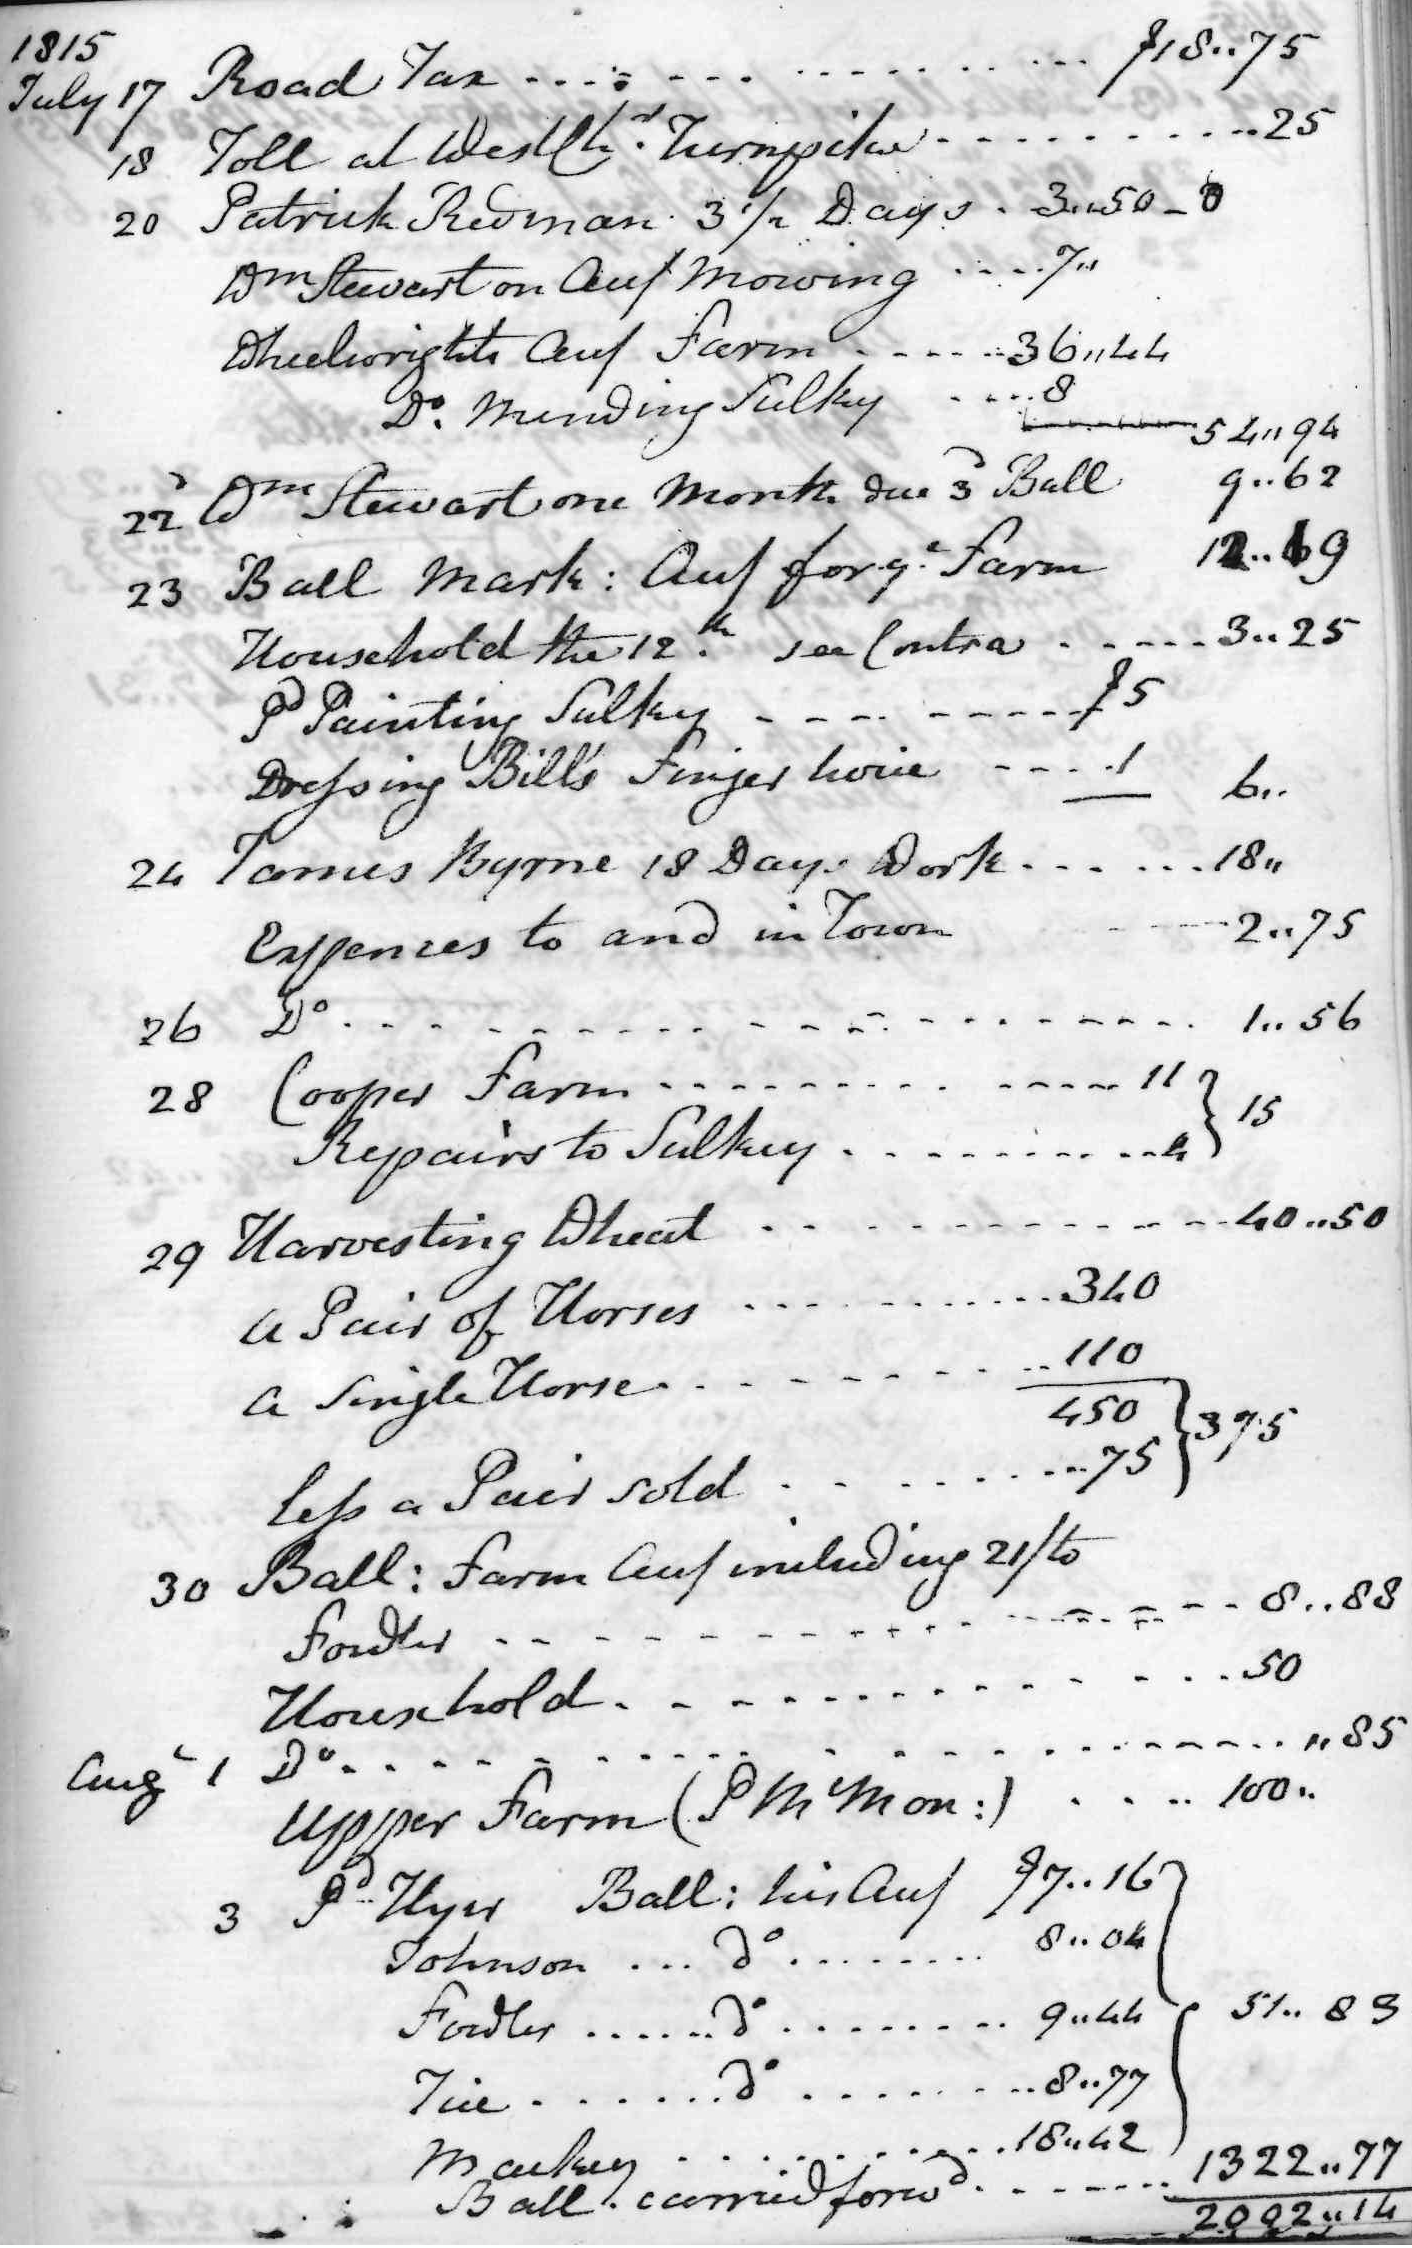 1815
July 17 Road Tax $18..75
18 Toll at West Ch.r Turnpike ..25
20 Patrick Redman 3 1/2 Days 3..50
Wm Stewart on Acct Mowing 7..
Wheelwrights Acct Farm 36..44
Do. Mending Sulky 8
54..94
22d Wm Stewart one Month due 3d Ball 9..62
23 Ball Mark: Acct for Farm 12..69
Household the 12th. see Contra 3..25
Pd Painting Sulky $5
Dressing Bill's Finger twice 1 6..
24 James Byrne 18 Days Work 18..
Expences to and in Town 2..75
26 Do 1..56
28 Cooper Farm 11 } 15
Repairs to Sulkey 4
29 Harvesting Wheat 40..50
a Pair of Horses 340
a Single Horse 110
450 } 375
less a Pair sold 75
30 Ball: Farm Acct including 21/ to
Fowler 8..88
Household 50
Augt 1 Do ..85
Upper Farm (P McMon:) 100..
3 Pd Hyer Ball: his Acct $7..16
Johnson do 8..04
Fowler do 9..44 } 51..83
Tice do 8..77
Mackey 18..42
Ball. carried forwd 1322..77
2002..14